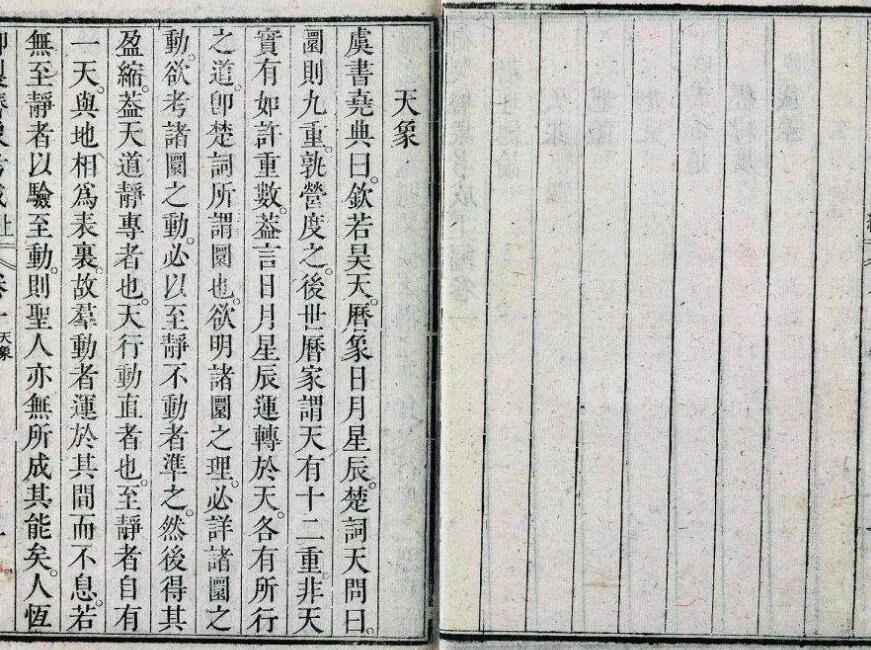 天象
虞書堯典曰。欽若昊天。曆象日月星辰。楚詞天問曰。
圜則九重。孰營度之。後世曆家謂天有十二重。非天
實有如許重數。葢言日月星辰運轉於天。各有所行
之道。卽楚詞所謂圜也。欲明諸圜之理。必詳諸圜之
動。欲考諸圜之動。必以至靜不動者準之。然後得其
盈縮。葢天道靜專者也。天行動直者也。至靜者自有
一天。與地相爲表裏。故羣動者運於其間而不息。若
無至靜者以驗至動。則聖人亦無所成其能矣。人恆
天象